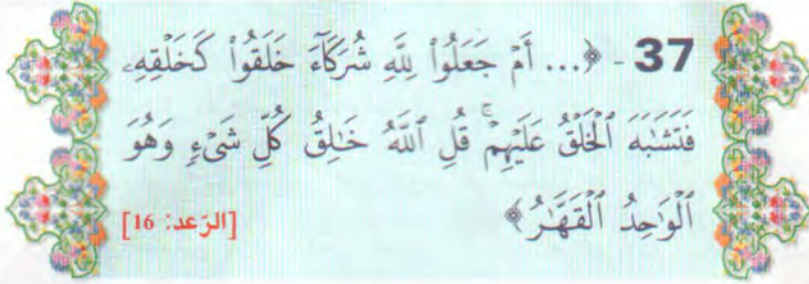 37 - ﴿... أَمْ جَعَلُوا۟ لِلَّهِ شُرَكَآءَ خَلَقُوا۟ كَخَلْقِهِۦ
فَتَشَـٰبَهَ ٱلْخَلْقُ عَلَيْهِمْ ۚ قُلِ ٱللَّهُ خَـٰلِقُ كُلِّ شَىْءٍ وَهُوَ
ٱلْوَٰحِدُ ٱلْقَهَّـٰرُ﴾ [الرّعد: 16]